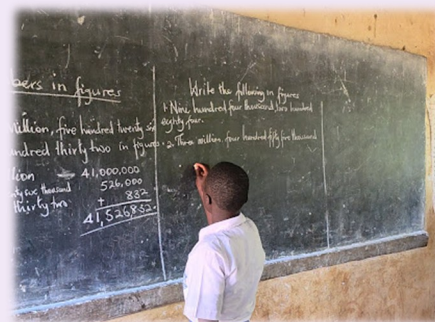 bers in figures
million, five hundred twenty six
hundred thirty two in figures.
lion 41,000,000
nty six thousand 526,000
thirty two + 832
41,526,832.
Write the following in figures
1. Nine hundred four thousand, two hundred
eighty four.
2. Three million, four hundred fifty five thousand